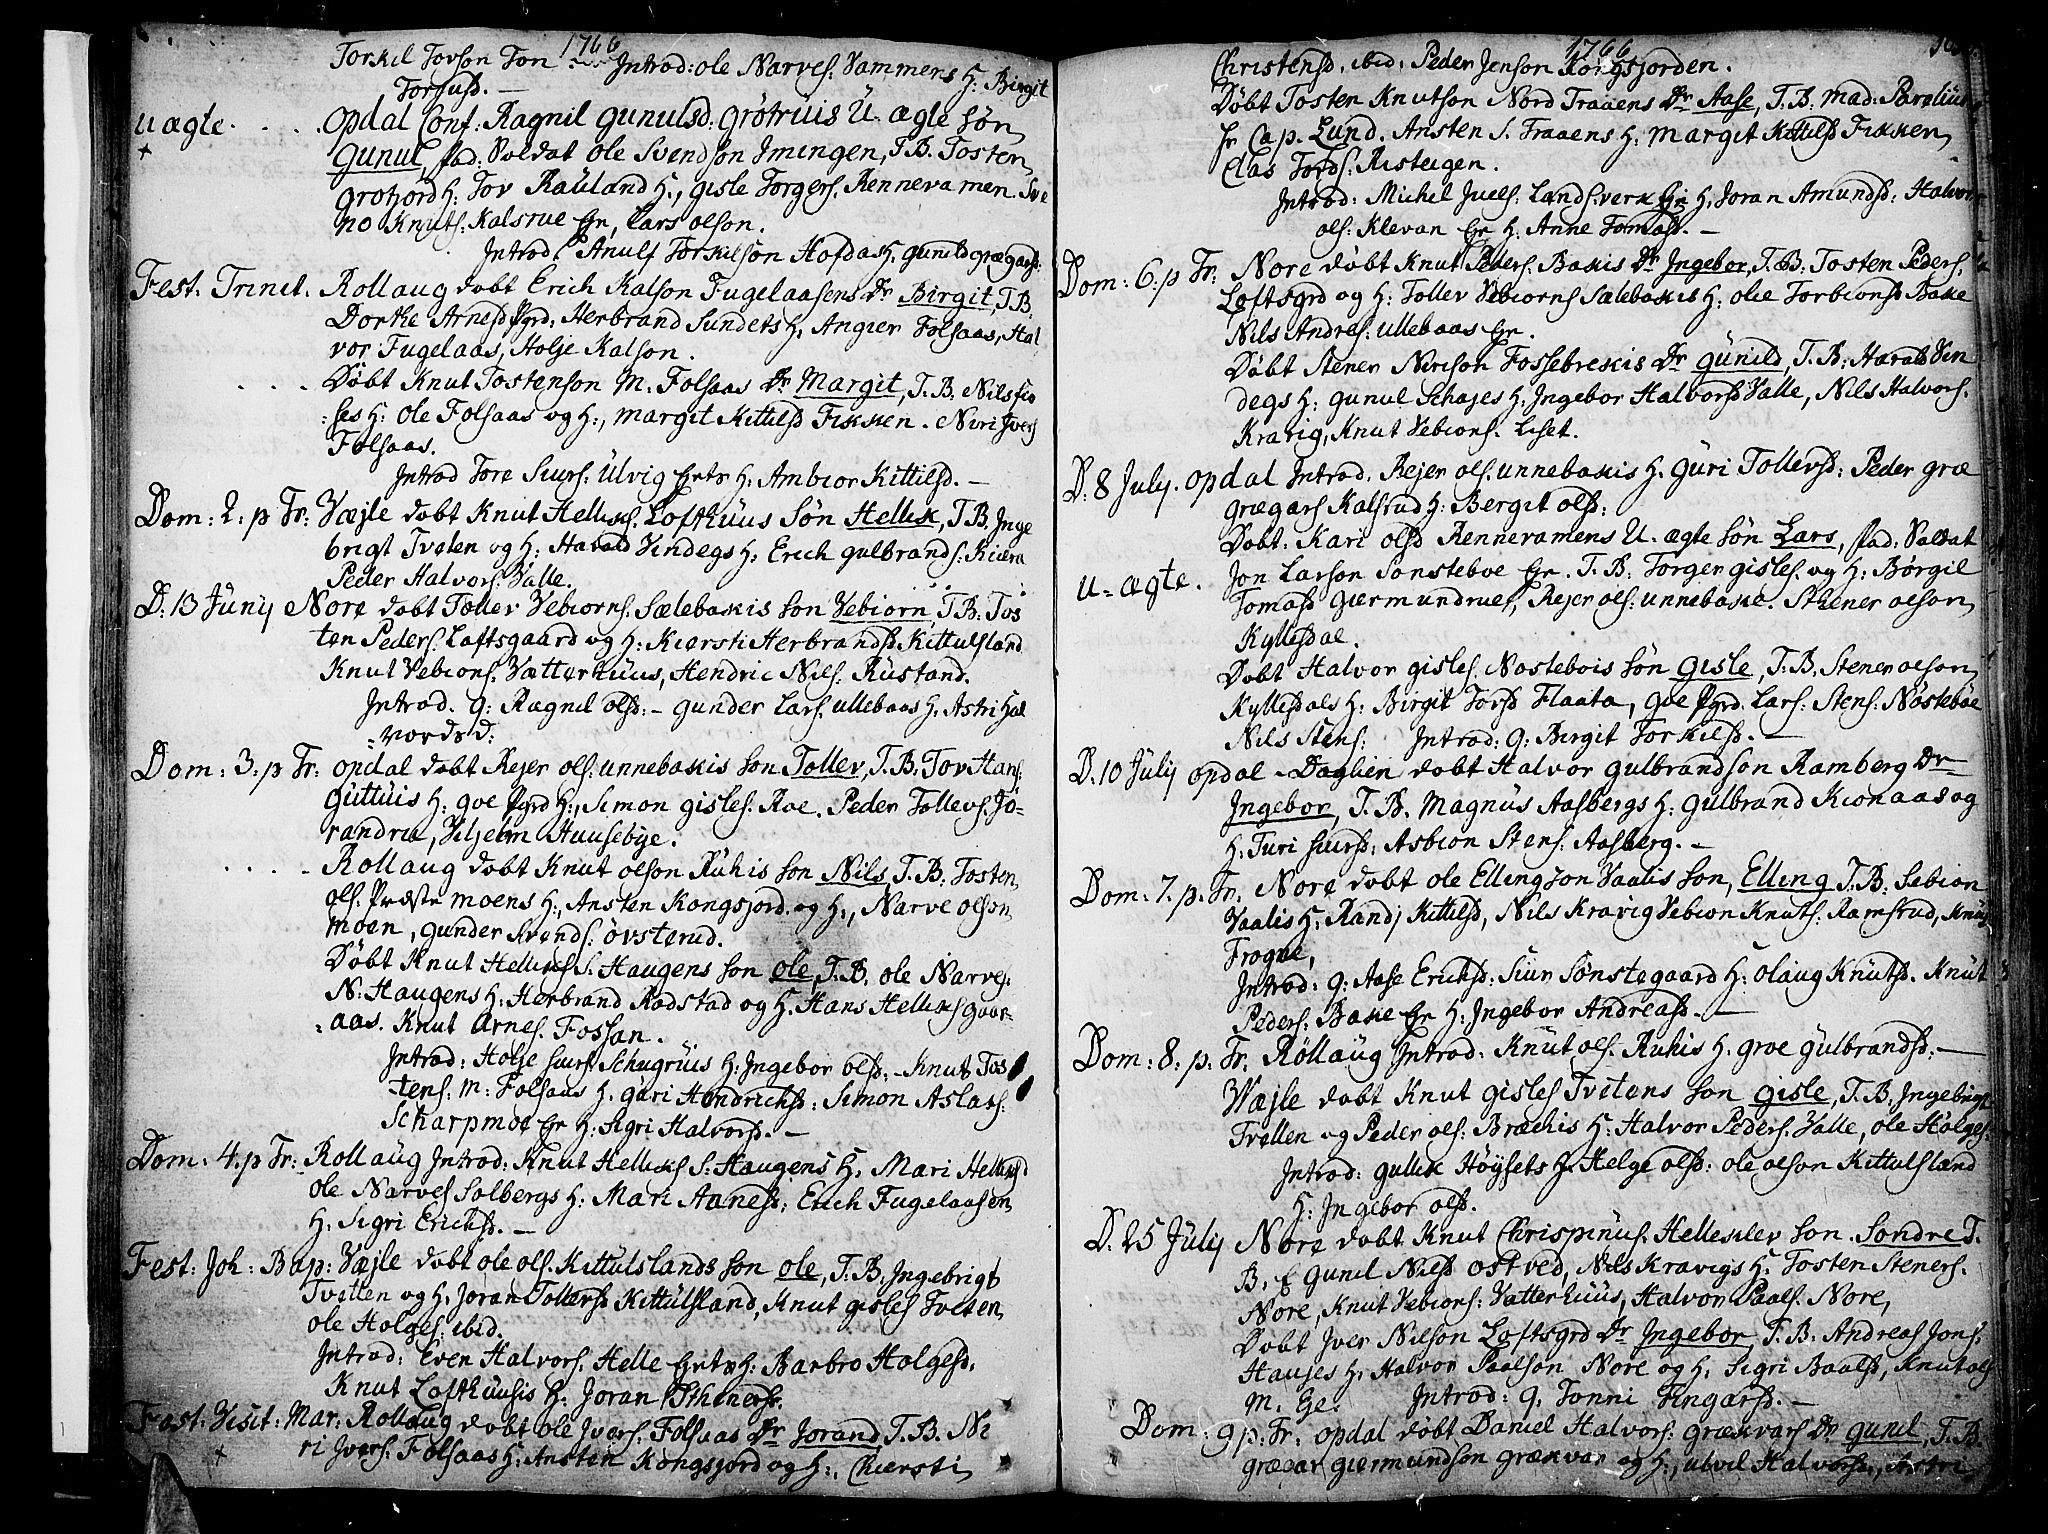 1766
Torkil Tovson Ton Introd: ole Narves. Vammens H: Birgit
Torsusd. —
u ægte. . . . . Opdal Conf: Ragnil Gunulsd: Grötruis U. ægte søn
Gunul, fad: Soldat Ole Svendson Imingen, T.B. Tosten
Grotjord H: Tov Rauland H., Gisle Torgers. Rennevamen. Sve
no Knuts. Kalsrue Gr, Lars olson.
Introd. Anulf Torkilson Hofdas H. Gunild Grægars:
Fest. Trinit. Rollaug döbt Erich Kalson Fugelaasens Dr Birgit, T.B.
Dortke Arnesd Pgrd: Herbrand Sundets H. Angier Folsaas, Hal
vor Fugelaas, Holje Kalson.
. . . . Döbt Knut Tostenson M. Folsaas Dr Margit, T.B. Nils
ses H: ole Folsaas og H:, Margit Kittilsd Fikken. Niri Jvers
Folsaas.
Introd Tore Siurs: Ulvig H: Ambior Kittilsd. —
Dom: 2. p Tr: Væjle döbt Knut Helliks. Lofthuus Søn Hellik, T.B. Inge
brigt Tveten og H: Harald Vindegs H, Erich Gulbrands. Kiæra
Peder Halvors. Valle.
D: 13 Junij Nore döbt Tollev Vebiorns. Sælebakis søn Vebiorn, T.B: Tos
ten Peders. Loftsgaard og H: Kiersti Herbrandsd Kittulsland
Knut Vebions. Vætterhuus, Hendric Nils. Rustand.
Introd. Q: Ragnil olsd: – Gunder Lars. Ullebaas H: Astri Hal
=vordsd:
Dom: 3. p Tr: Opdal döbt Rejer ols: Unnebakis søn Tollev, T.B: Tov Hans:
Guttuis H: Goe Pgrd H:, Simon Gisles. Roe. Peder Tollevs. Jö-
randru, Viljelm Huusebÿe.
. . . . Rollaug döbt Knut olson Ruhis søn Nils, T.B: Tosten
ols. Præstemoens H:, Ansten Kongsjord og H:, Narve olson
Moen, Gunder Svends. Øvsterud.
Döbt Knut Helliks. S. Haugens søn ole, T.B. ole Narves.
N: Haugens H: Herbrand Rodstad og H. Hans Helliks Goor-
=aas. Knut Arnes. Fossan.
Introd: Holje Siurs. Schugruis H: Ingebor olsd: – Knut Tos
tens. M: Folsaas H. Guri Hendrichsd: Simon Aslacs:
Scharpmoe Gr H: Sigri Halvorsd. —
Dom: 4. p Tr: Rollaug Introd: Knut Helliks S. Haugens H. Mari Helliksd
ole Narves Solbergs H: Mari Annesd: Erich Fugelaasen
H: Sigri Erichsd. —
Fest: Joh: Bap: Væjle döbt ole ols. Kittulslands søn ole, T.B. Ingebrigt
Tvetten og H, Jøran Tollevsd Kittulsland, Knut Gisles Tveten
ole Holges: ibid.
Introd: Even Halvors: Helle H: Barbro Holgesd.
Knut Lofthuusis H: Joran Sthenersd.
Fest: Visit: Mar: Rollaug döbt ole Jvers. Folsaas Dr Jorand, T.B. Ni
ri Jvers. Folsaas H: Ansten Kongsjord og H:, Chiersti
1766
Christensd. ibid: Peder Jenson Kongsjorden.
Döbt Tosten Knutson Nord Traaens Dr Aase, T.B: Mad: Parelius
Hr Cap. Lund. Ansten S. Traaens H: Margit Kittilsd Fikken
Clas Tords. Risteigen.
Introd: Michel Juels: Landsverk Gr H. Joran Amundsd: Halvor
ols. Klevan Gr H: Anne Tomasd. —
Dom: 6. p Tr: Nore döbt Knut Peders. Bakis Dr Ingebor, T.B: Tosten Peders.
Loftsgrd og H: Tollev Vebiorns Sælebakis H: olie Torbionsd Bake
Nils Andres: Ullebaas Gr.
Döbt Stener Nirison Fossebrekis Dr Gunild, T.B: Harald Vin
degs H: Gunul Schajes H: Ingebor Halvorsd Valle, Nils Halvors.
Kravig, Knut Vebions. Liset.
D: 8 July. Opdal Introd. Rejer ols. Unnebakis H. Guri Tollevsd: Peder Græ
grægars Kalsrud H: Bergit olsd:
Döbt. Kari olsd Rennevamens U. ægte søn Lars, fad. Soldat
u=ægte. Jon Larson Sønsteboe Gr. T.B: Torger Gisles. og H: Børgil
Tomasd Giermundrues, Rejer ols: Unnebake. Sthener olson
Kyllesdal.
Döbt Halvor Gisles. Nøstebois søn Gisle, T.B. Stener olson
Kyllesdals H: Birgit Tovsd Flaata, Goe Pgrd. Lars: Stens: Nøsteböe
Nils Stens: Introd: Q: Birgit Torkilsd. —
D. 10 Julij Opdal – Daglien döbt Halvor Gulbrandson Ramberg Dr
Ingebor, T.B. Magnus Aasbergs H: Gulbrand Kionaas og
H: Turi Siursd: Asbion Stens: Aasberg. —
Dom: 7. p. Tr. Nore döbt ole Ellingson Vaalis søn, Elling T.B: Sebion
Vaalis H: Randj Kittilsd, Nils Kravig Vebion Knuts. Ramsrud, Knut
Frogne,
Introd: Q: Aase Erichsd: Siur Sønstegaard H: Olaug Knutsd. Knut
Peders. Bake Gr H: Ingebor Andreasd. —
Dom: 8. p. Tr. Röllaug Introd: Knut ols. Ruhis H. Groe Gulbrandsd: —
Wæjle döbt Knut Gisles Tvetens søn Gisle, T.B. Ingebrigt
Tvetten og Peder ols: Bræckis H: Halvor Peders. Valle, ole Holges
Introd: Gullik Höysets H. Helge olsd: ole olson Kittulsland
H: Ingebor olsd.
D. 25 Julij Nore döbt Knut Chrispinus. Hellesklev søn Sondre T.
B. E Gunil Nilsd Ostved, Nils Kravigs H. Tosten Steners.
Nore, Knut Vebions: Vatterhuus, Halvor Paals. Nore,
Döbt Jver Nilson Loftsgrd Dr Ingebor, T.B: Andreas Jons.
Haujes H: Halvor Paalson Nore og H, Sigri Baalsd, Knut ols
M. Ge. Introd: Q. Tonni Fingarsd. —
Dom: 9 p. Tr: Opdal döbt Daniel Halvors: Grækvars Dr Gunil, T.B.
Grægar Giermundson Grækvar og H:, Ulvil Halvorsd., Astri